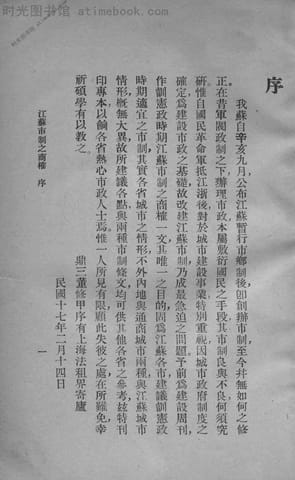 时光图书馆 - atimebook.com
序
我蘇自辛亥九月公布江蘇暫行市鄉制後卽創辦市制至今幷無如何之修
正在昔軍閥政制之下辦理市政本屬敷衍國民之手段其市制良與不良何須究
研惟自國民革命軍抵江浙後對於城市建設事業特別重視因城市政府制度之
確定爲建設市政之基礎故改建江蘇市制乃成最急迫之問題予前爲建設周刊
作訓憲政時期江蘇市制之商榷一文其唯一之目的固爲江蘇各市建議訓憲政
時期適宜之市制其實各省城市之情形不外內地與通商城市兩種與江蘇城市
情形槪無大異故所建議各點與兩種市制條文均可供其他各省之參考茲特刊
印專本以餉各省熱心市政人士焉惟一人所見有限顧此失彼之處在所難免幸
祈碩學有以教之
鼎三董修甲序有上海法租界寄廬
民國十七年二月十四日
江蘇市制之商榷 序
一